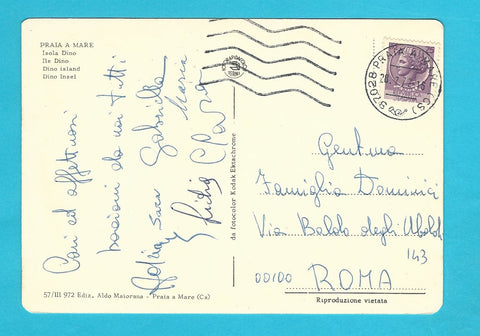 PRAIA A MARE
Isola Dino
Ile Dino
Dino island
Dino Insel
Cari ed affettuosi
bacioni da noi tutti
Gabriella
Maria
Clara
57/III 972 Ediz. Aldo Maiorana - Praia a Mare (Cs)
da fotocolor Kodak Ektachrome
87028 PRAIA A MARE (CS)
Gent.ma
Famiglia Dominici
Via Baldo degli Ubaldi
143
00100 ROMA
Riproduzione vietata